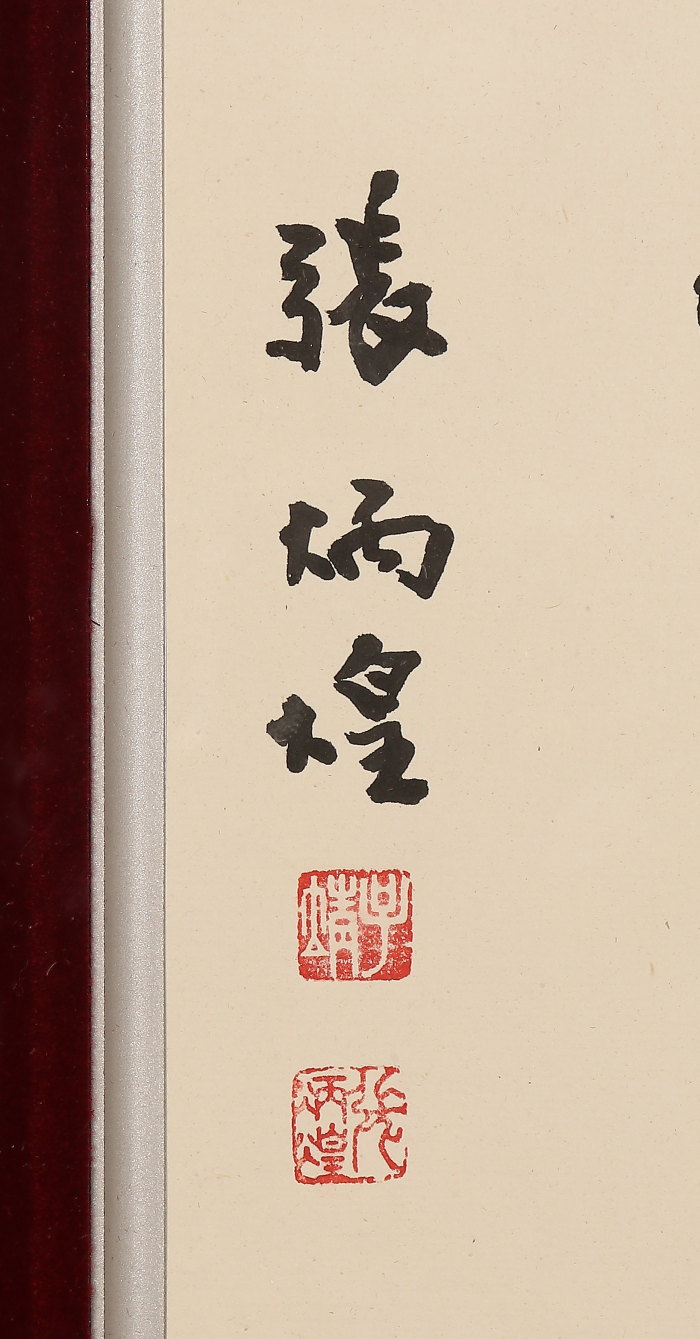 張炳煌
張炳煌